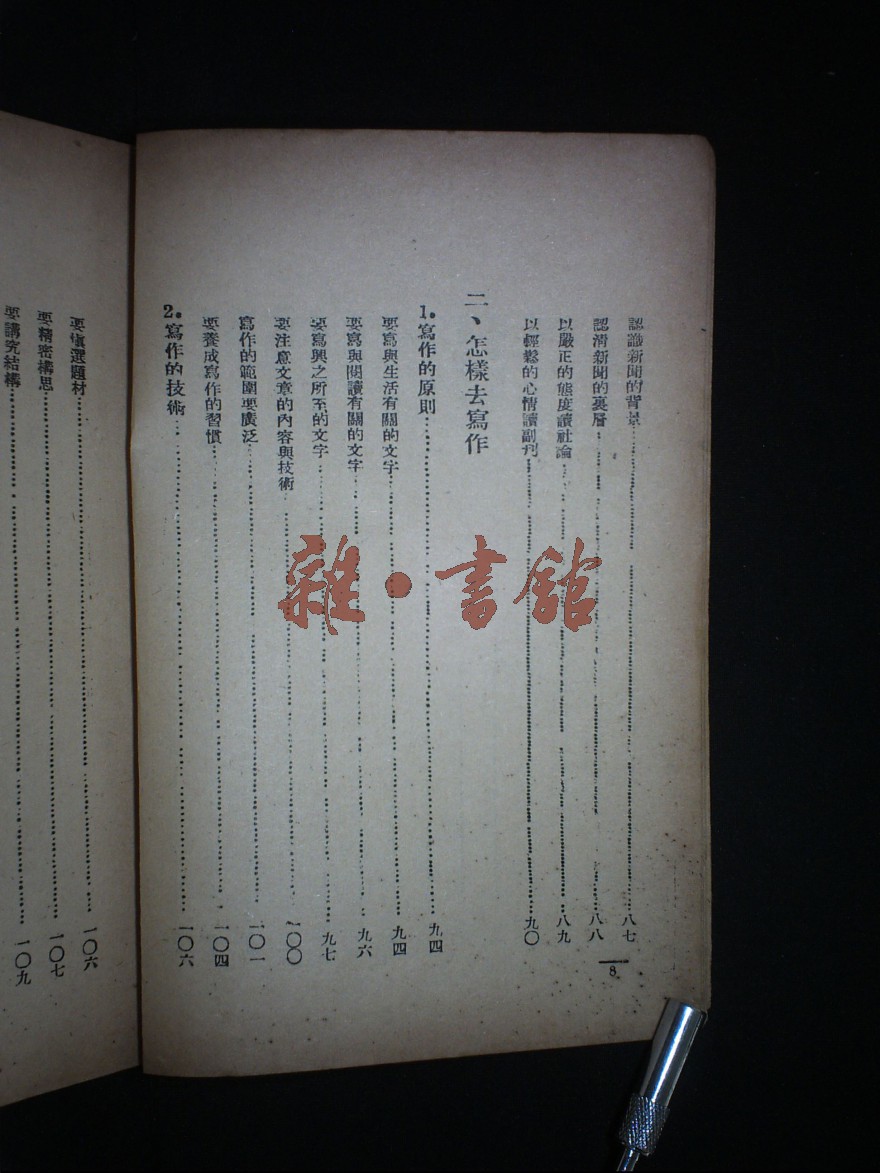 認識新聞的背景 八七
認清新聞的裏層 八八
以嚴正的態度讀社論 八九
以輕鬆的心情讀副刊 九〇
二、怎樣去寫作
1.寫作的原則 九四
要寫與生活有關的文字 九四
要寫與閱讀有關的文字 九六
要寫興之所至的文字 九七
要注意文章的內容與技術 一〇〇
寫作的範圍要廣泛 一〇一
要養成寫作的習慣 一〇四
2.寫作的技術 一〇六
8
要愼選題材 一〇六
要精密構思 一〇七
要講究結構 一〇九
雜·書館